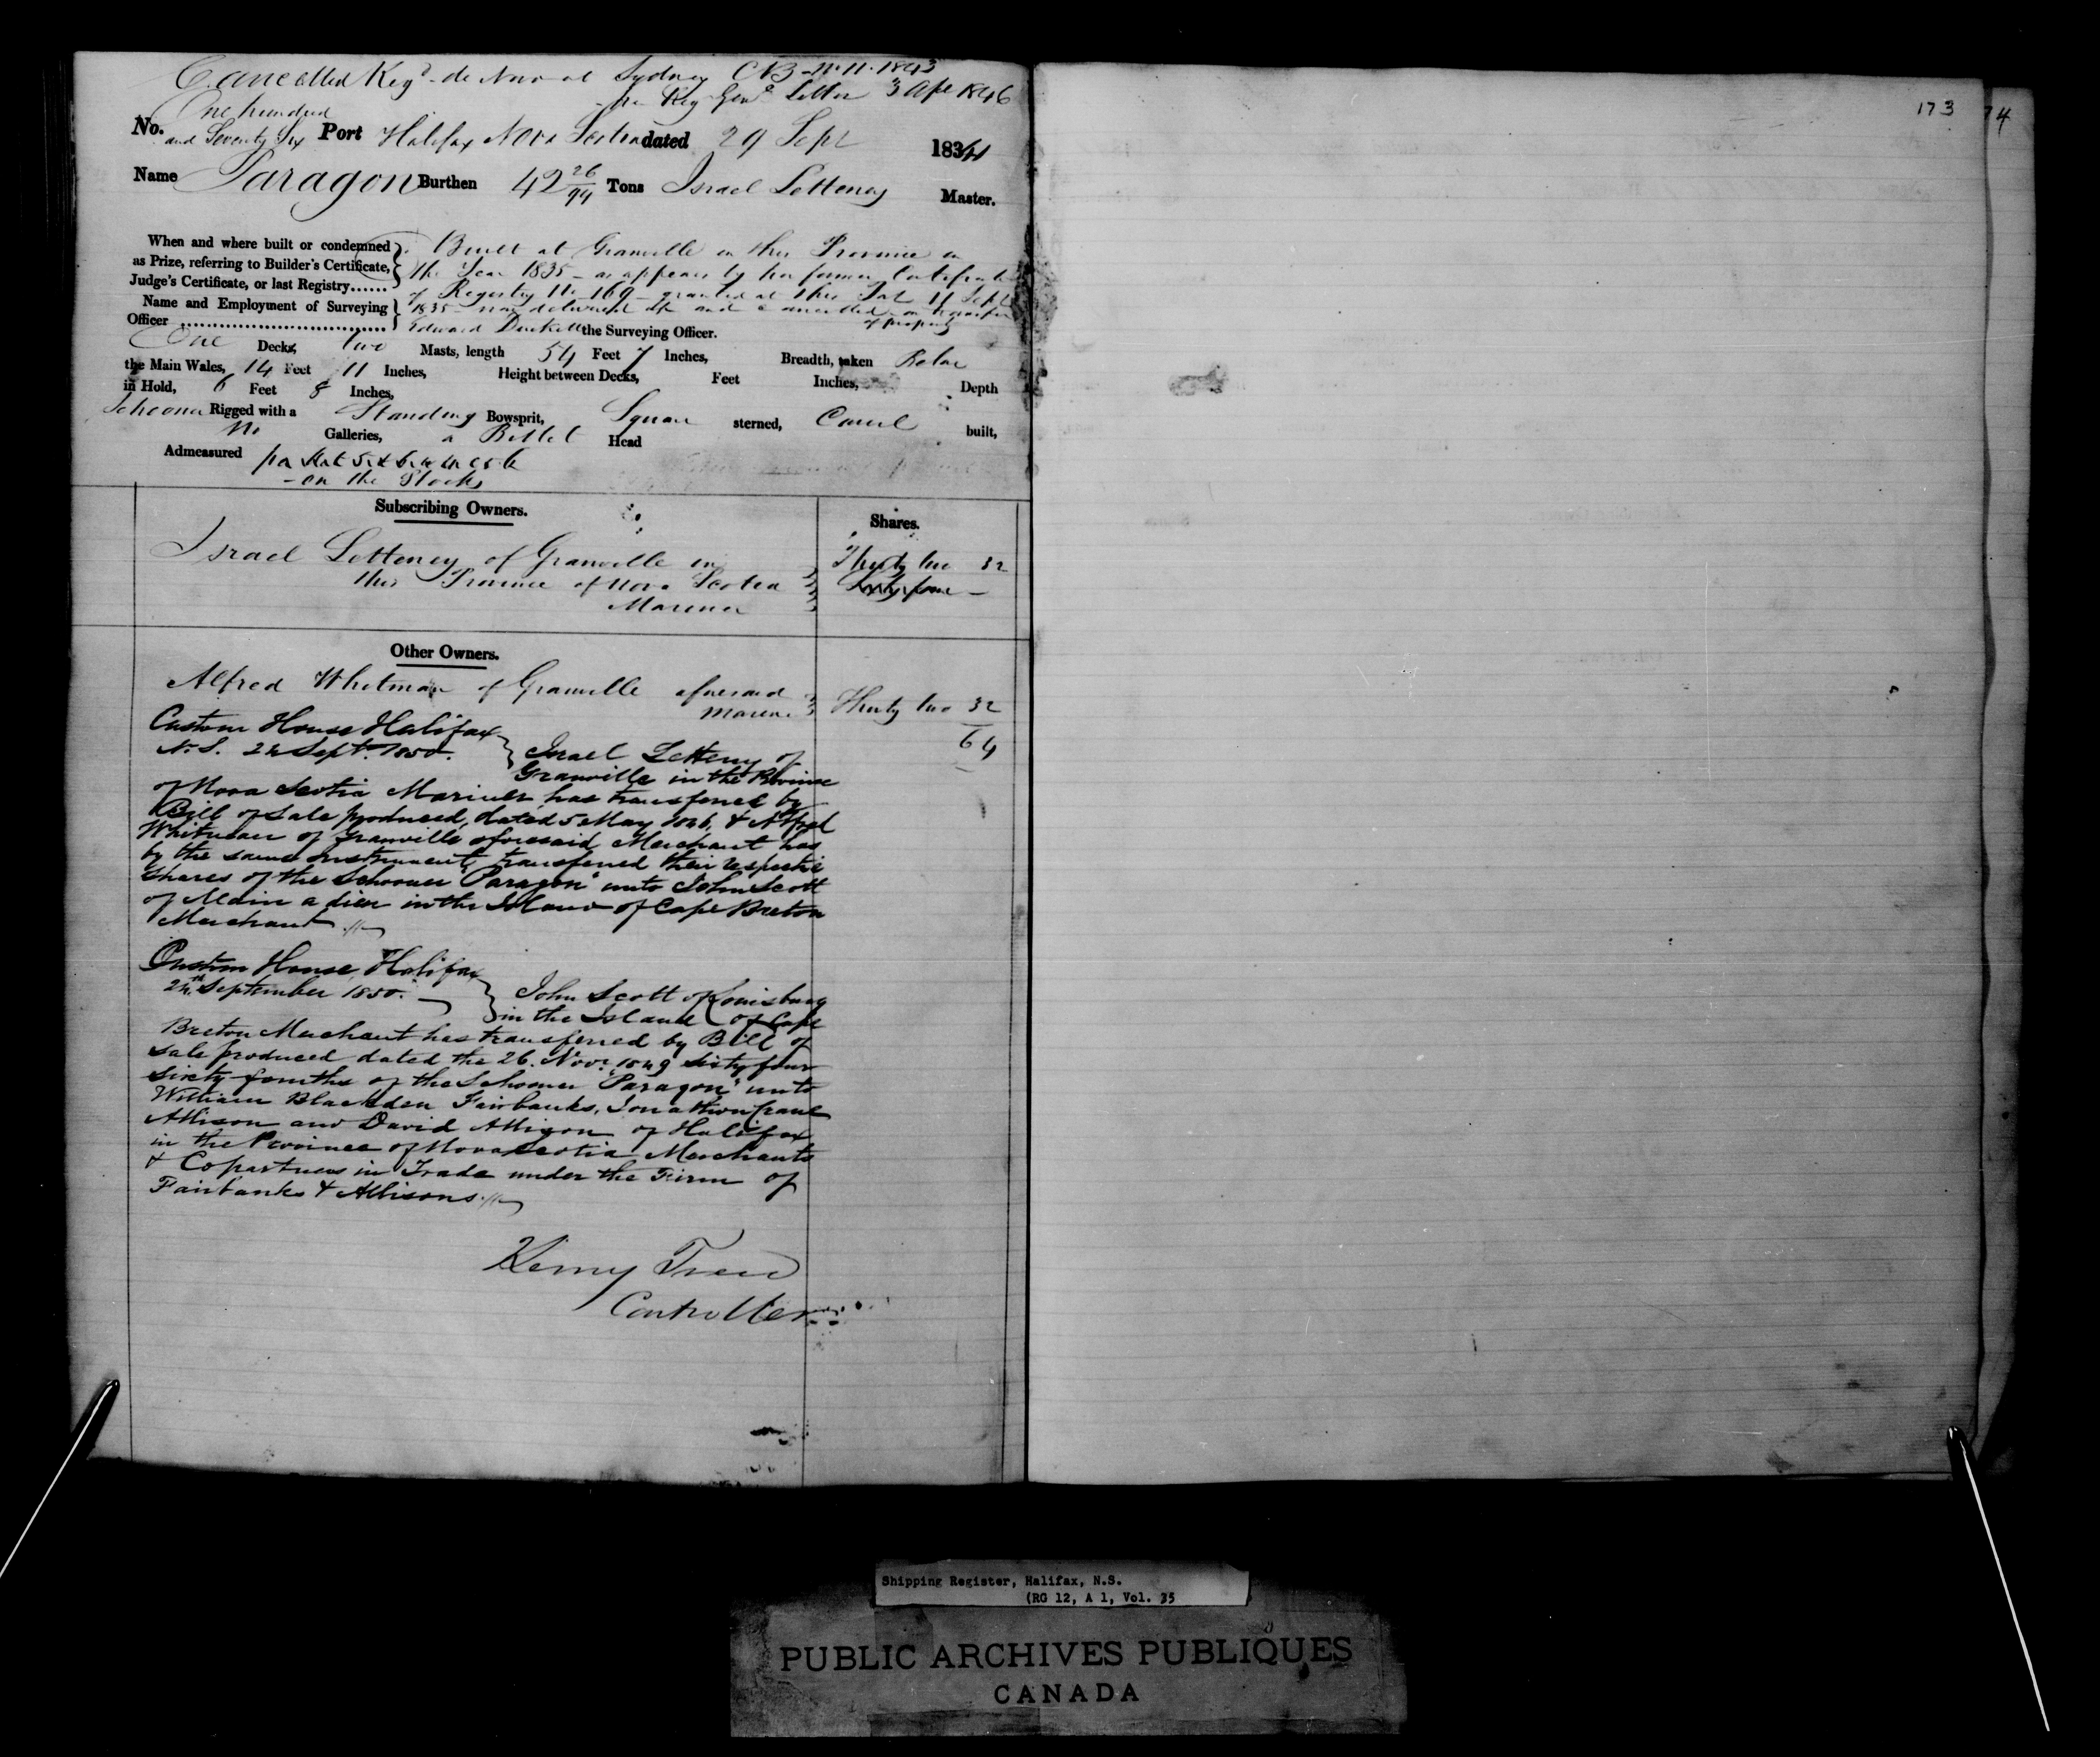 Cancelled Reg.d de Novo at Sydney CB 11.11.1843
per Reg Gen.l Letter 3 Ap 1846
173 74
One hundred
No. and Seventy Six Port Halifax Nova Scotia dated 29 Sept 1834
Name Paragon Burthen 42 26/94 Tons Israel Letteney Master.
When and where built or condemned Built at Granville in this Province in
as Prize, referring to Builder's Certificate, the Year 1835 - as appears by her former Certificate
Judge's Certificate, or last Registry...... of Registry No 169 - granted at this Port 11 Sept
Name and Employment of Surveying 1835 - now delivered up and cancelled on transfer
of property
Officer ................................ Edward Duckett the Surveying Officer.
One Decks, two Masts, length 54 Feet 7 Inches, Breadth, taken Below
the Main Wales, 14 Feet 11 Inches, Height between Decks, Feet Inches, Depth
in Hold, 6 Feet 8 Inches,
Schooner Rigged with a Standing Bowsprit, Square sterned, Carvel built,
No Galleries, a Billet Head
Admeasured
- on the Stocks
Subscribing Owners. Shares.
Israel Letteney of Granville in Thirty two 32
this Province of Nova Scotia Sixty four -
Mariner
Other Owners.
Alfred Whitman of Granville aforesaid
Thirty two 32
64
Custom House Halifax
N.S. 24 Sept. 1850. Israel Letteny of
Granville in the Province
of Nova Scotia Mariner has transferred by
Bill of Sale produced, dated 5 May 1846, & Alfred
Whitman of Granville aforesaid, Merchant has
by the same instrument, transferred their respective
shares of the Schooner "Paragon" unto John Scott
of Main a dieu in the Island of Cape Breton
Merchant
Custom House, Halifax
24th September 1850. John Scott of Louisburg
in the Island of Cape
Breton Merchant has transferred by Bill of
sale produced dated the 26. Nov.r 1849 sixty four
sixty-fourths of the Schooner "Paragon" unto
William Blackden Fairbanks, Jonathan Crane
Allison and David Allison of Halifax
in the Province of Nova Scotia Merchants
& Copartners in Trade under the Firm of
Fairbanks & Allisons
Controller
Shipping Register, Halifax, N.S.
(RG 12, A 1, Vol. 35
PUBLIC ARCHIVES PUBLIQUES
CANADA